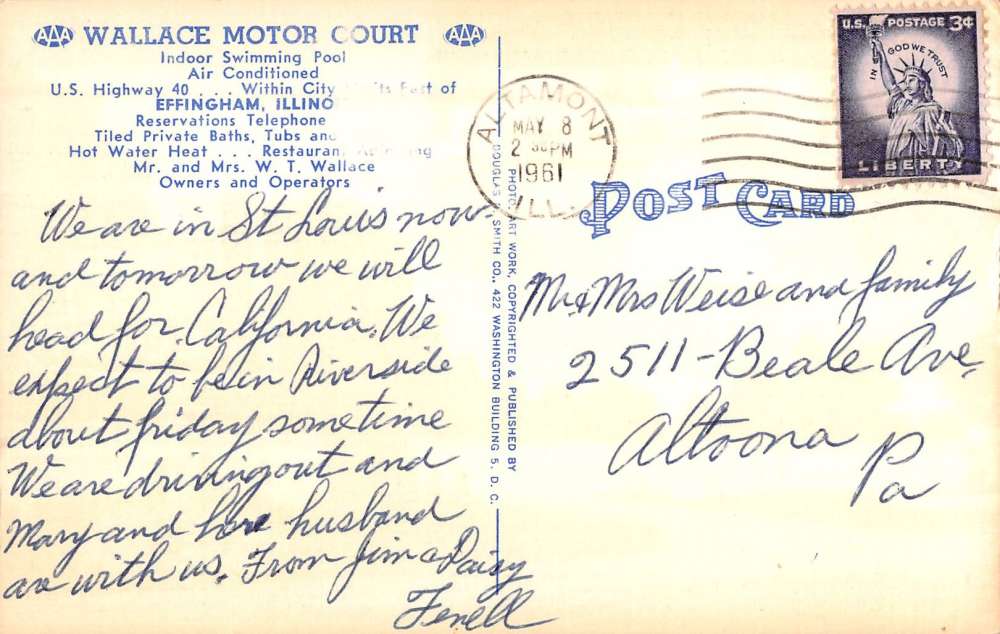 AAA WALLACE MOTOR COURT AAA
Indoor Swimming Pool
Air Conditioned
U.S. Highway 40 . . . Within City East of
EFFINGHAM, ILLINO
Reservations Telephone
Tiled Private Baths, Tubs and
Hot Water Heat . . . Restaurant
Mr. and Mrs. W. T. Wallace
Owners and Operators
We are in St Louis now
and tomorrow we will
head for California. We
expect to be in Riverside
about friday sometime
We are driving out and
Mary and her husband
are with us. From Jim & Daisy
Ferell
PHOTO, ART WORK, COPYRIGHTED & PUBLISHED BY
DOUGLAS SMITH CO., 422 WASHINGTON BUILDING 5. D. C.
ALTAMONT
MAY 8
2 30 PM
1961
ILL.
U.S. POSTAGE 3¢
IN GOD WE TRUST
LIBERTY
POST CARD
Mr & Mrs Weise and family
2511-Beale Ave,
Altoona
Pa